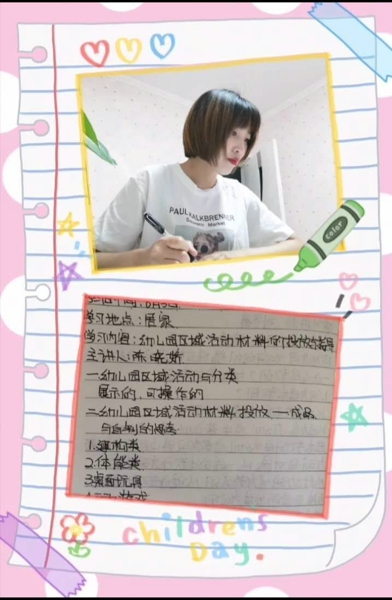 PAUL KALKBRENNER
学习地点:居家
学习内容:幼儿园区域活动材料的投放与指导
主讲人:陈晓娇
一幼儿园区域活动与分类
展示的、可操作的
二幼儿园区域活动材料投放一成品
与自制的思考
1.建构类
2.体能类
3桌面玩具
color
childrens
Day.